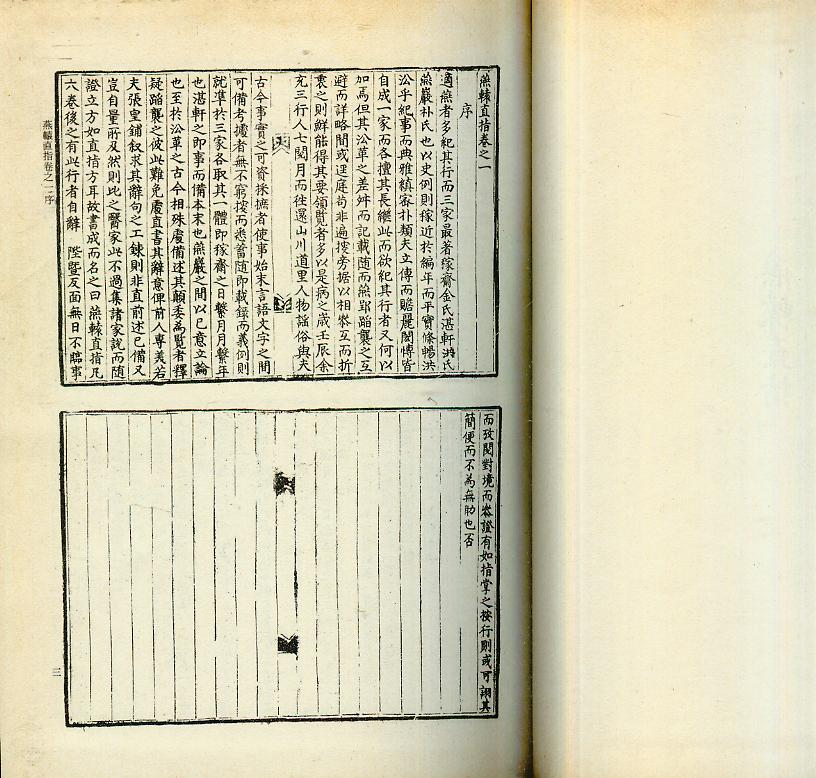 燕轅直指卷之一
序
適燕者多紀其行而三家最著稼齋金氏湛軒洪氏
燕巖朴氏也以史例則稼近於編年而平實條暢洪
沿乎紀事而典雅縝密朴類夫立傳而贍麗閎博皆
自成一家而各擅其長繼此而欲紀其行者又何以
加焉但其沿革之差舛而記載隨而燕郢蹈襲之互
避而詳略間或逕庭苟非遍搜旁據以相叅互而折
衷之則鮮能得其要領覽者多以是病之歲壬辰余
充三行人七閱月而往還山川道里人物謠俗與夫
古今事實之可資採摭者使事始末言語文字之間
可備考據者無不窮搜而悉蓄隨即載錄而義例則
就準於三家各取其一體即稼齋之日繫月月繫年
也湛軒之即事而備本末也燕巖之間以己意立論
也至於沿革之古今相殊處備述其顛委為覽者釋
疑蹈襲之彼此難免處直書其辭意俾前人專美若
夫張皇鋪叙求其辭句之工鍊則非直前述已備又
豈自量所及然則比之醫家此不過集諸家說而隨
證立方如直指方耳故書成而名之曰燕轅直指凡
六卷後之有此行者自辭 陛曁反面無日不臨事
燕轅直指卷之一 序
而攷閱對境而叅證有如指掌之按行則或可詡其
簡便而不為無助也否
三